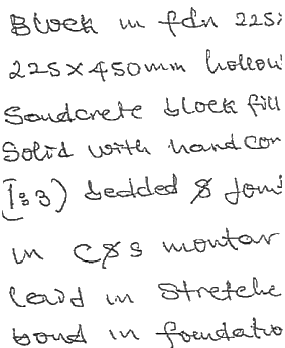 Block in fdn 225x
225x450mm hollow
Sandcrete block fill
Solid with hand con
1:3) bedded & Joint
in C&S montar
laid in Stretche
bond in foundatio